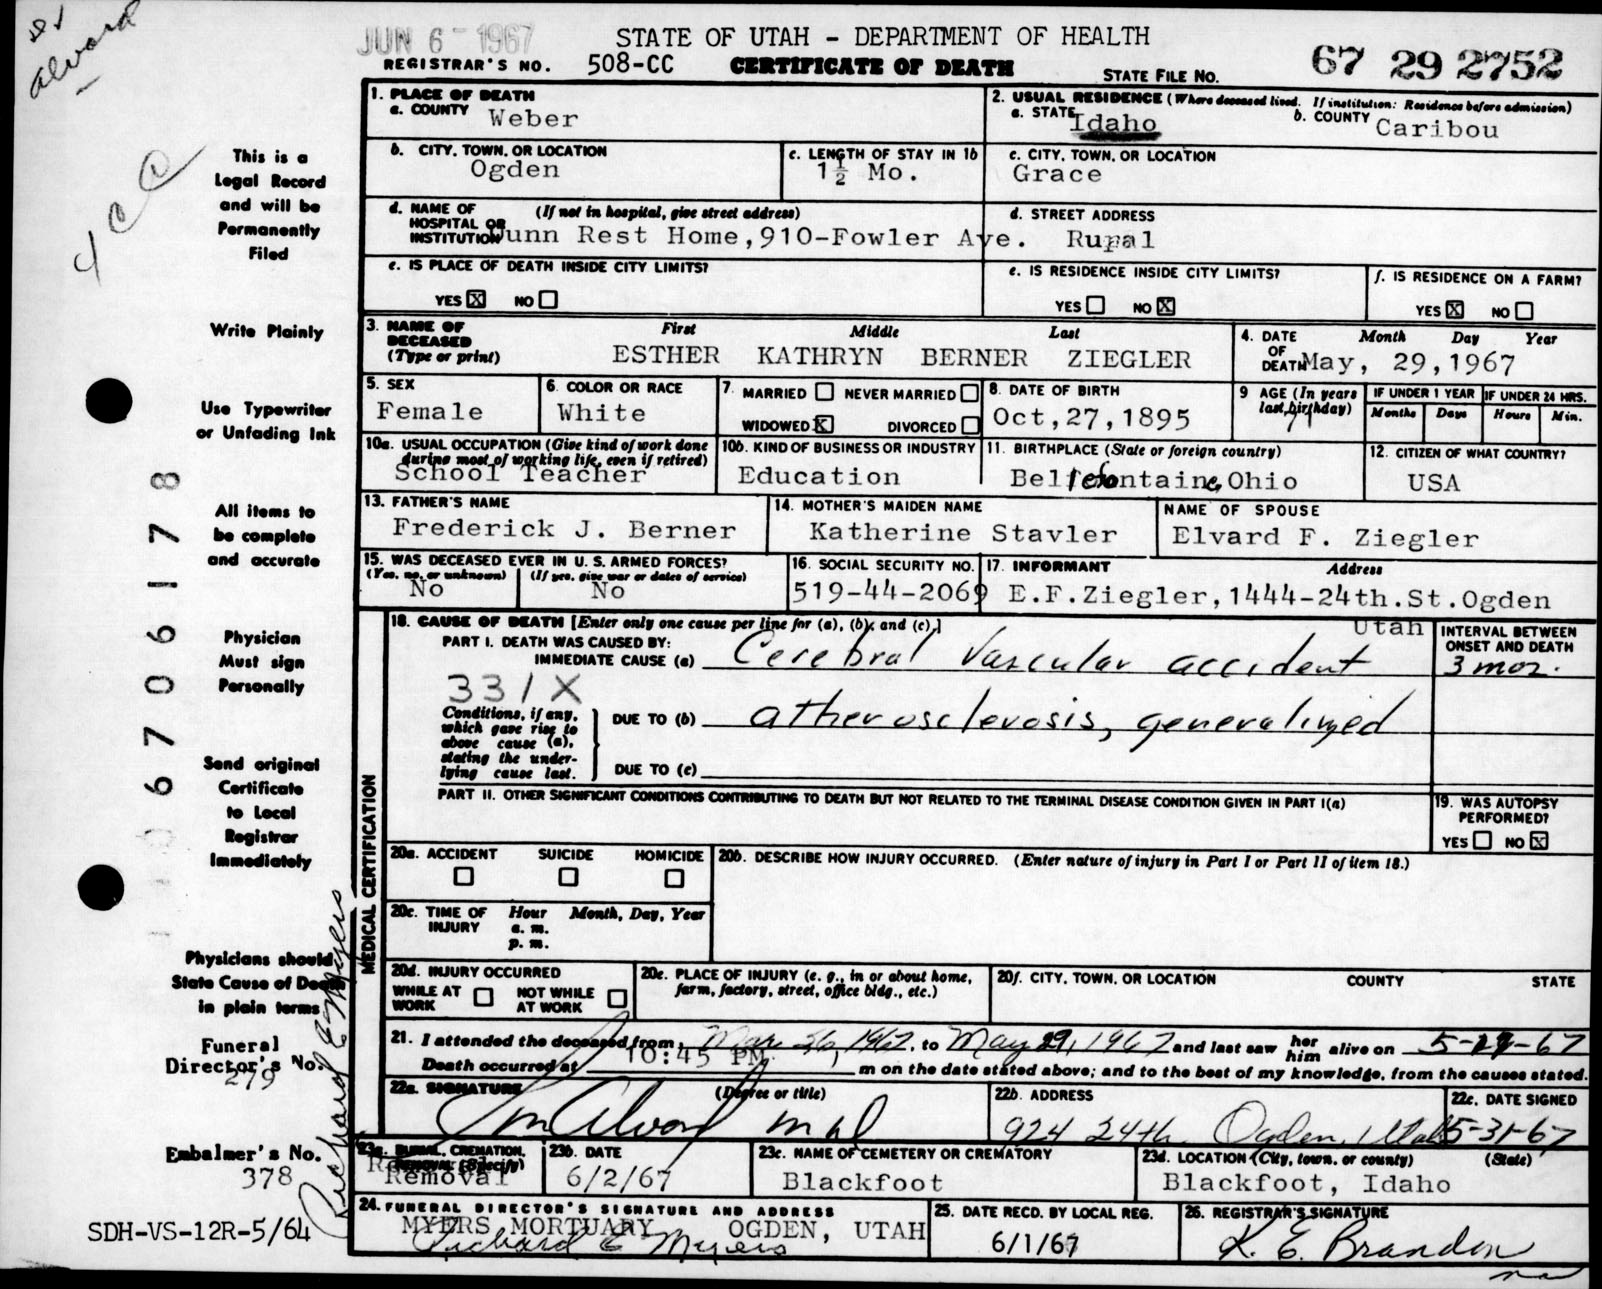 Dr
alvord
4 CC
JUN 6 - 1967
STATE OF UTAH - DEPARTMENT OF HEALTH
REGISTRAR'S NO. 508-CC CERTIFICATE OF DEATH STATE FILE NO. 67 29 2752
This is a
Legal Record
and will be
Permanently
Filed
Write Plainly
Use Typewriter
or Unfading Ink
All items to
be complete
and accurate
Physician
Must sign
Personally
Send original
Certificate
to Local
Registrar
Immediately
Physicians should
State Cause of Death
in plain terms
Funeral
Director's No.
279
Embalmer's No.
378
SDH-VS-12R-5/64
67061778
Richard E Myers
1. PLACE OF DEATH
a. COUNTY Weber
2. USUAL RESIDENCE (Where deceased lived. If institution: Residence before admission)
a. STATE Idaho b. COUNTY Caribou
b. CITY, TOWN, OR LOCATION
Ogden
c. LENGTH OF STAY IN 1b
1½ Mo.
c. CITY, TOWN, OR LOCATION
Grace
d. NAME OF HOSPITAL OR INSTITUTION (If not in hospital, give street address)
Dunn Rest Home,910-Fowler Ave.
d. STREET ADDRESS
Rural
e. IS PLACE OF DEATH INSIDE CITY LIMITS?
YES X NO
e. IS RESIDENCE INSIDE CITY LIMITS?
YES NO X
f. IS RESIDENCE ON A FARM?
YES X NO
3. NAME OF DECEASED (Type or print) First Middle Last
ESTHER KATHRYN BERNER ZIEGLER
4. DATE OF DEATH Month Day Year
May, 29,1967
5. SEX
Female
6. COLOR OR RACE
White
7. MARRIED NEVER MARRIED
WIDOWED X DIVORCED
8. DATE OF BIRTH
Oct,27,1895
9 AGE (In years last birthday)
71
IF UNDER 1 YEAR IF UNDER 24 HRS.
Months Days Hours Min.
10a. USUAL OCCUPATION (Give kind of work done during most of working life, even if retired)
School Teacher
10b. KIND OF BUSINESS OR INDUSTRY
Education
11. BIRTHPLACE (State or foreign country)
Bellefontaine, Ohio
12. CITIZEN OF WHAT COUNTRY?
USA
13. FATHER'S NAME
Frederick J. Berner
14. MOTHER'S MAIDEN NAME
Katherine Stavler
NAME OF SPOUSE
Elvard F. Ziegler
15. WAS DECEASED EVER IN U. S. ARMED FORCES?
(Yes, no, or unknown) (If yes, give war or dates of service)
No No
16. SOCIAL SECURITY NO.
519-44-2069
17. INFORMANT Address
E.F.Ziegler,1444-24th.St.Ogden
Utah
18. CAUSE OF DEATH [Enter only one cause per line for (a), (b), and (c).]
PART I. DEATH WAS CAUSED BY:
IMMEDIATE CAUSE (a) Cerebral Vascular accident
INTERVAL BETWEEN ONSET AND DEATH
3 mos.
331X
Conditions, if any, which gave rise to above cause (a), stating the underlying cause last.
DUE TO (b) atherosclerosis, generalized
DUE TO (c)
PART II. OTHER SIGNIFICANT CONDITIONS CONTRIBUTING TO DEATH BUT NOT RELATED TO THE TERMINAL DISEASE CONDITION GIVEN IN PART I(a)
19. WAS AUTOPSY PERFORMED?
YES NO X
MEDICAL CERTIFICATION
20a. ACCIDENT SUICIDE HOMICIDE
20b. DESCRIBE HOW INJURY OCCURRED. (Enter nature of injury in Part I or Part II of item 18.)
20c. TIME OF INJURY Hour Month, Day, Year
a. m.
p. m.
20d. INJURY OCCURRED
WHILE AT WORK NOT WHILE AT WORK
20e. PLACE OF INJURY (e. g., in or about home, farm, factory, street, office bldg., etc.)
20f. CITY, TOWN, OR LOCATION COUNTY STATE
21. I attended the deceased from, Mar 26, 1967, to May 29, 1967 and last saw her him alive on 5-29-67
Death occurred at 10:45 PM, m on the date stated above; and to the best of my knowledge, from the causes stated.
22a. SIGNATURE (Degree or title)
Alvord md
22b. ADDRESS
924 24th Ogden, Utah
22c. DATE SIGNED
5-31-67
23a. BURIAL, CREMATION, REMOVAL (Specify)
Removal
23b. DATE
6/2/67
23c. NAME OF CEMETERY OR CREMATORY
Blackfoot
23d. LOCATION (City, town, or county) (State)
Blackfoot, Idaho
24. FUNERAL DIRECTOR'S SIGNATURE AND ADDRESS
MYERS MORTUARY OGDEN, UTAH
Richard E Myers
25. DATE RECD. BY LOCAL REG.
6/1/67
26. REGISTRAR'S SIGNATURE
K. E. Brandon